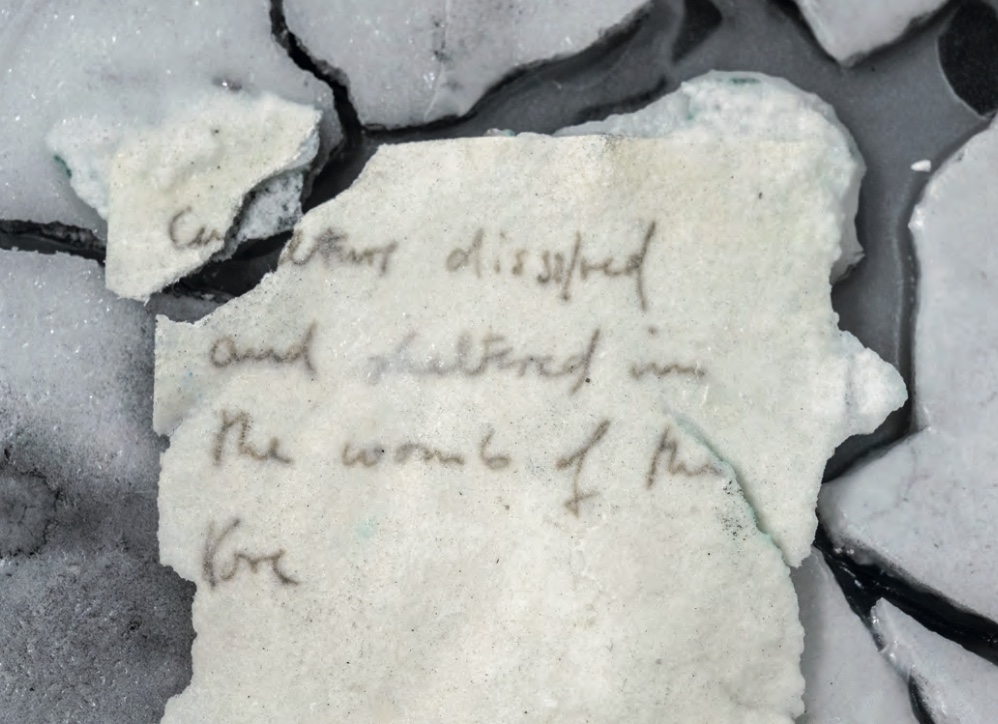 dissolved
and sheltered in
the womb of the
Kore